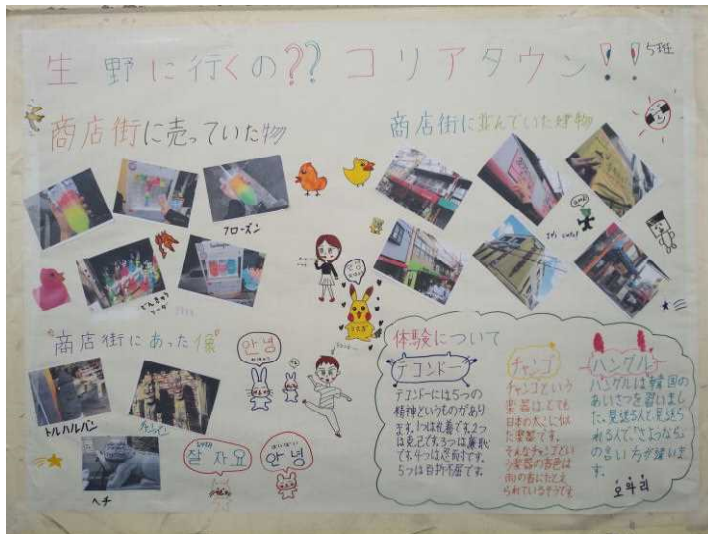 生野に行くの?? コリアタウン!!
5班
商店街に売っていた物
商店街に並んでいた建物
フローズン
でんきゅう
ソーダ
"商店街にあった像"
안녕
トルハルバン
チャンスン
ヘチ
잘 자요
안녕
体験について
テコンドー
テコンドーには5つの
精神というものがあり
ます。1つは礼義です。2つ
は克己です。3つは廉恥
です。4つは忍耐です。
5つは百折不屈です。
チャンゴ
チャンゴという
楽器はとても
日本の太こに似
た楽器です。
そんなチャンゴとい
う楽器の音色は
雨の音にたとえ
られているそうです
ハングル
ハングルは韓国の
あいさつを習いまし
た。見送る人と見送ら
れる人で「さようなら」
の言い方が違いま
す。